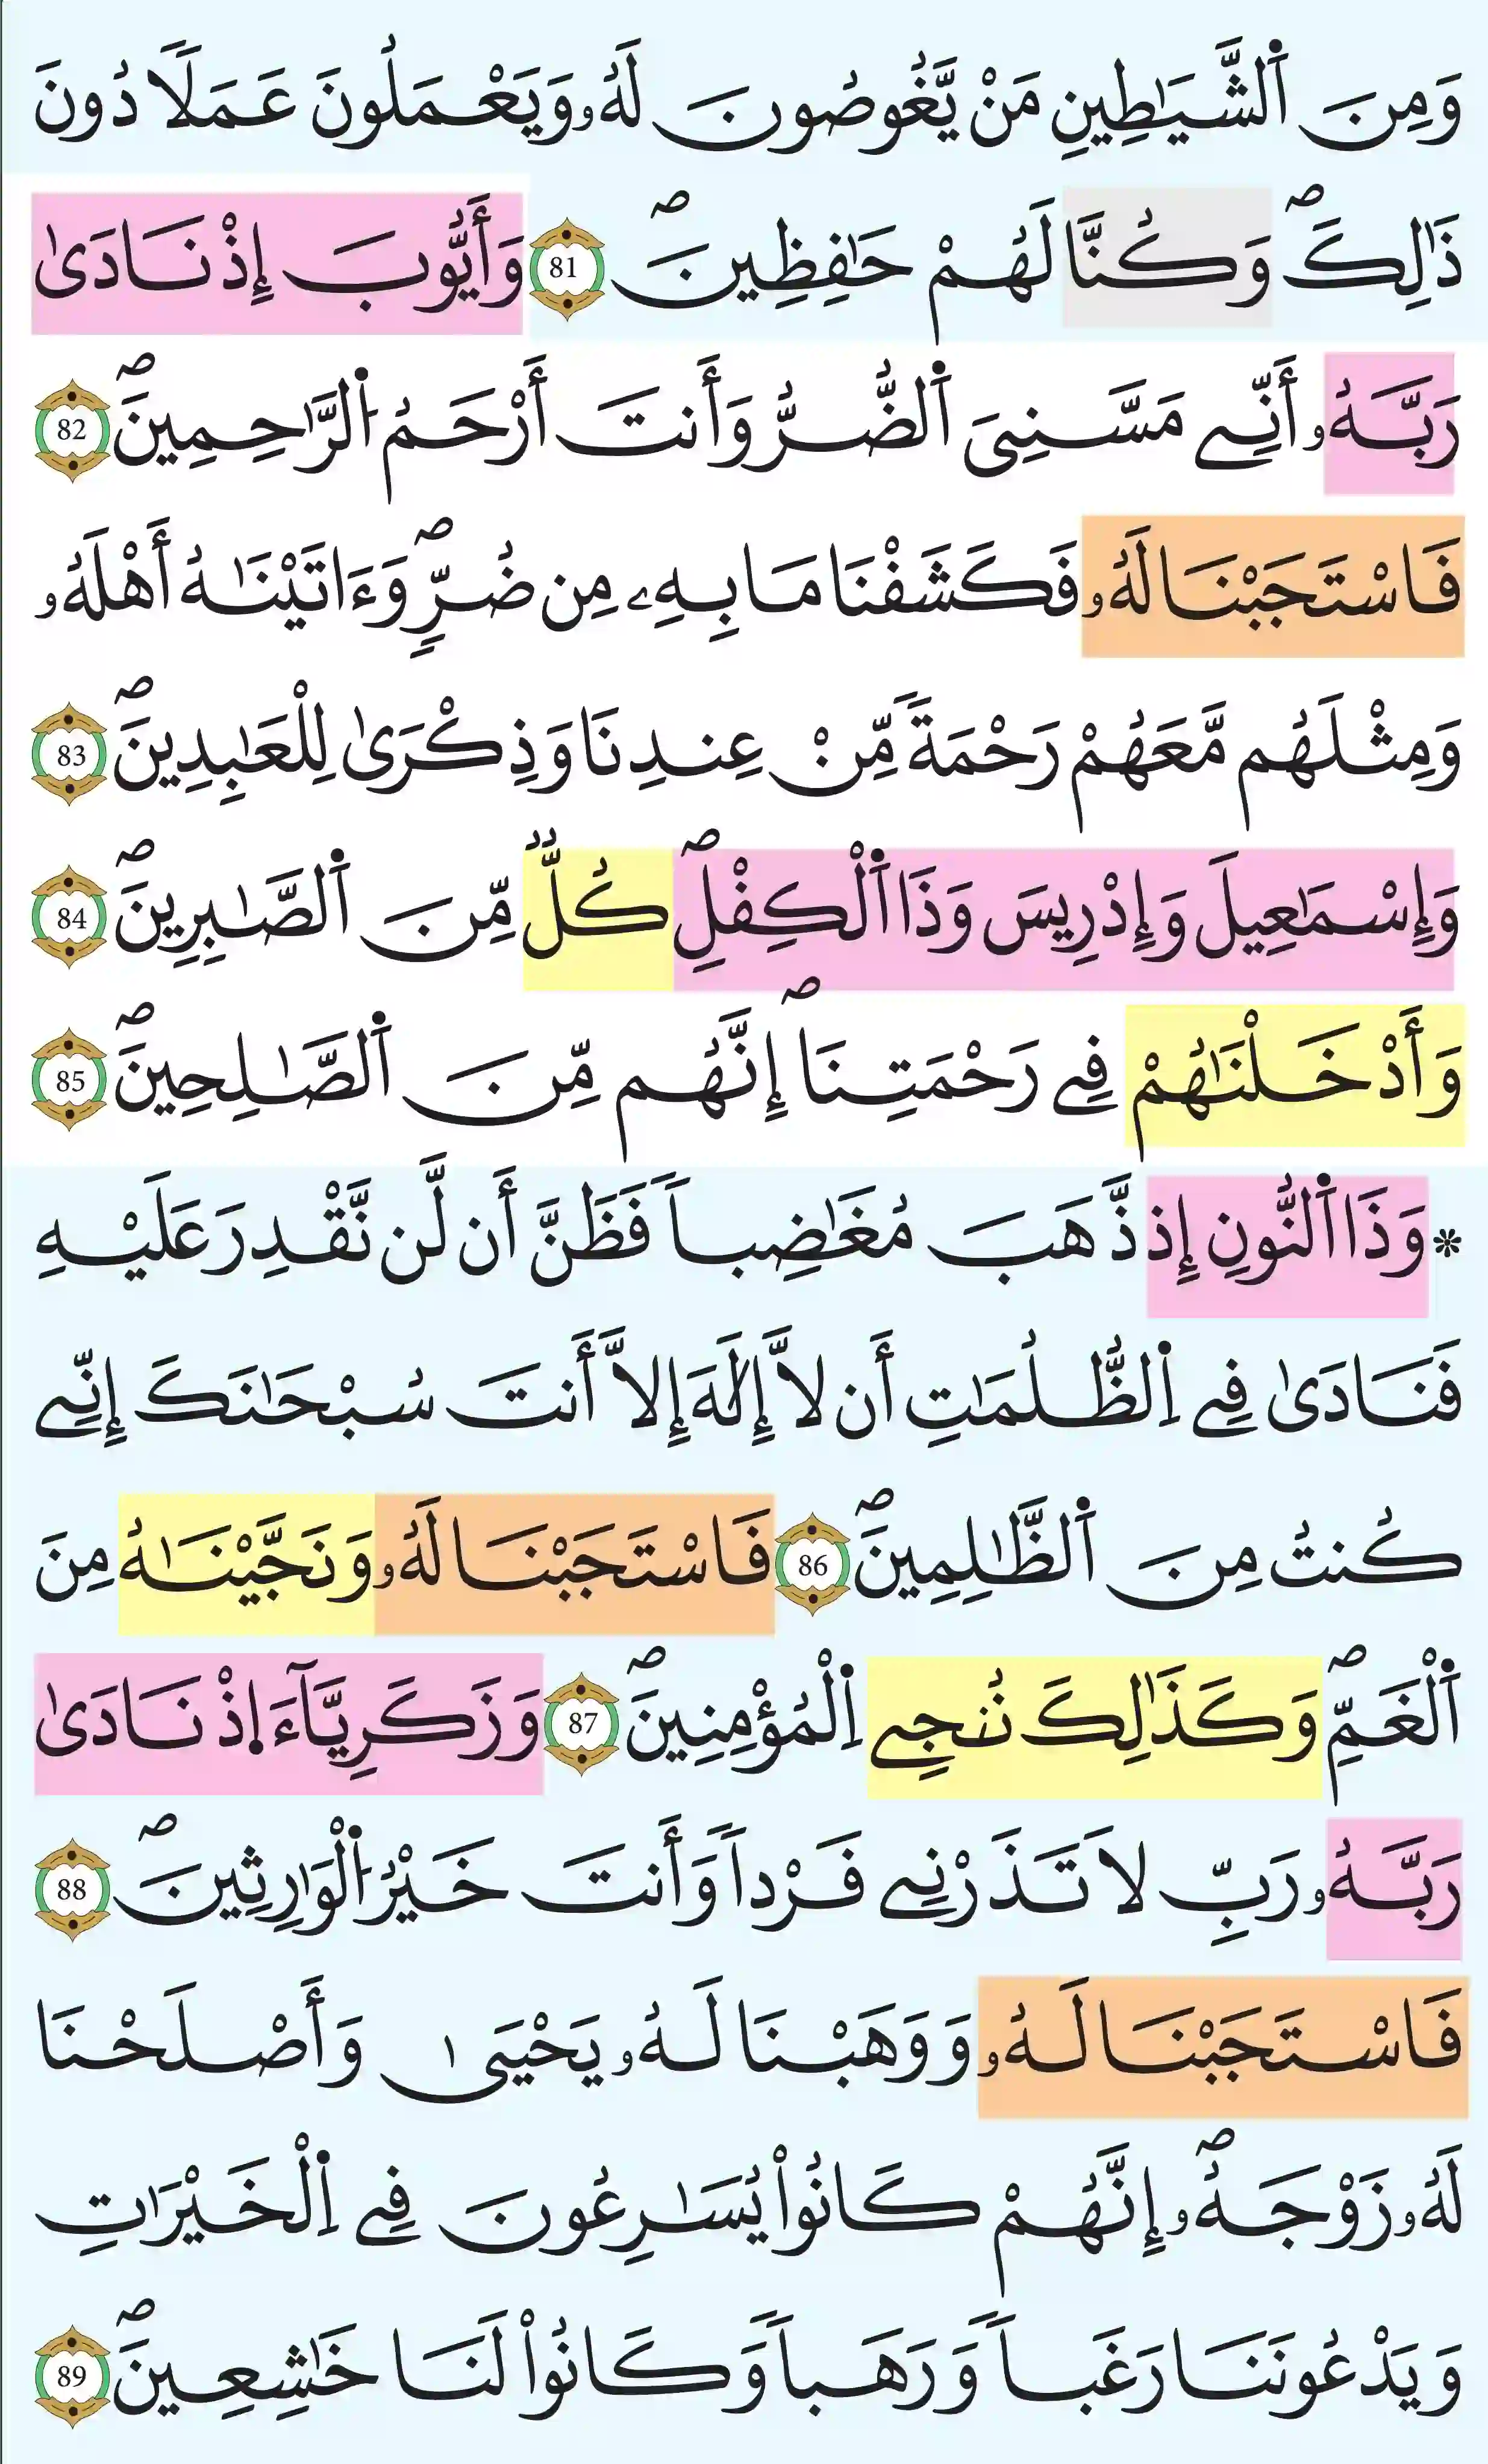 وَمِنَ اَ۬لشَّيَٰطِينِ مَنْ يَّغُوصُونَ لَهُۥ وَيَعْمَلُونَ عَمَلاٗ دُونَ
ذَٰلِكَۖ وَكُنَّا لَهُمْ حَٰفِظِينَۖ 81 وَأَيُّوبَ إِذْ نَادَىٰ
رَبَّهُۥٓ أَنِّے مَسَّنِيَ اَ۬لضُّرُّ وَأَنتَ أَرْحَمُ اُ۬لرَّٰحِمِينَۖ 82
فَاسْتَجَبْنَا لَهُۥ فَكَشَفْنَا مَا بِهِۦ مِن ضُرّٖۖ وَءَاتَيْنَٰهُ أَهْلَهُۥ
وَمِثْلَهُم مَّعَهُمْ رَحْمَةٗ مِّنْ عِندِنَا وَذِكْرَىٰ لِلْعَٰبِدِينَۖ 83
وَإِسْمَٰعِيلَ وَإِدْرِيسَ وَذَا اَ۬لْكِفْلِۖ كُلّٞ مِّنَ اَ۬لصَّٰبِرِينَۖ 84
وَأَدْخَلْنَٰهُمْ فِے رَحْمَتِنَاۖ إِنَّهُم مِّنَ اَ۬لصَّٰلِحِينَۖ 85
* وَذَا اَ۬لنُّونِ إِذ ذَّهَبَ مُغَٰضِباٗ فَظَنَّ أَن لَّن نَّقْدِرَ عَلَيْهِ
فَنَادَىٰ فِے اِ۬لظُّلُمَٰتِ أَن لَّا إِلَٰهَ إِلَّا أَنتَ سُبْحَٰنَكَ إِنِّے
كُنتُ مِنَ اَ۬لظَّٰلِمِينَۖ 86 فَاسْتَجَبْنَا لَهُۥ وَنَجَّيْنَٰهُ مِنَ
اَ۬لْغَمِّۖ وَكَذَٰلِكَ نُۨجِے اِ۬لْمُؤْمِنِينَۖ 87 وَزَكَرِيَّآءَ اِ۪ذْ نَادَىٰ
رَبَّهُۥ رَبِّ لَا تَذَرْنِے فَرْداٗ وَأَنتَ خَيْرُ اُ۬لْوَٰرِثِينَۖ 88
فَاسْتَجَبْنَا لَهُۥ وَوَهَبْنَا لَهُۥ يَحْيَىٰ وَأَصْلَحْنَا
لَهُۥ زَوْجَهُۥٓۖ إِنَّهُمْ كَانُواْ يُسَٰرِعُونَ فِے اِ۬لْخَيْرَٰتِ
وَيَدْعُونَنَا رَغَباٗ وَرَهَباٗ وَكَانُواْ لَنَا خَٰشِعِينَۖ 89